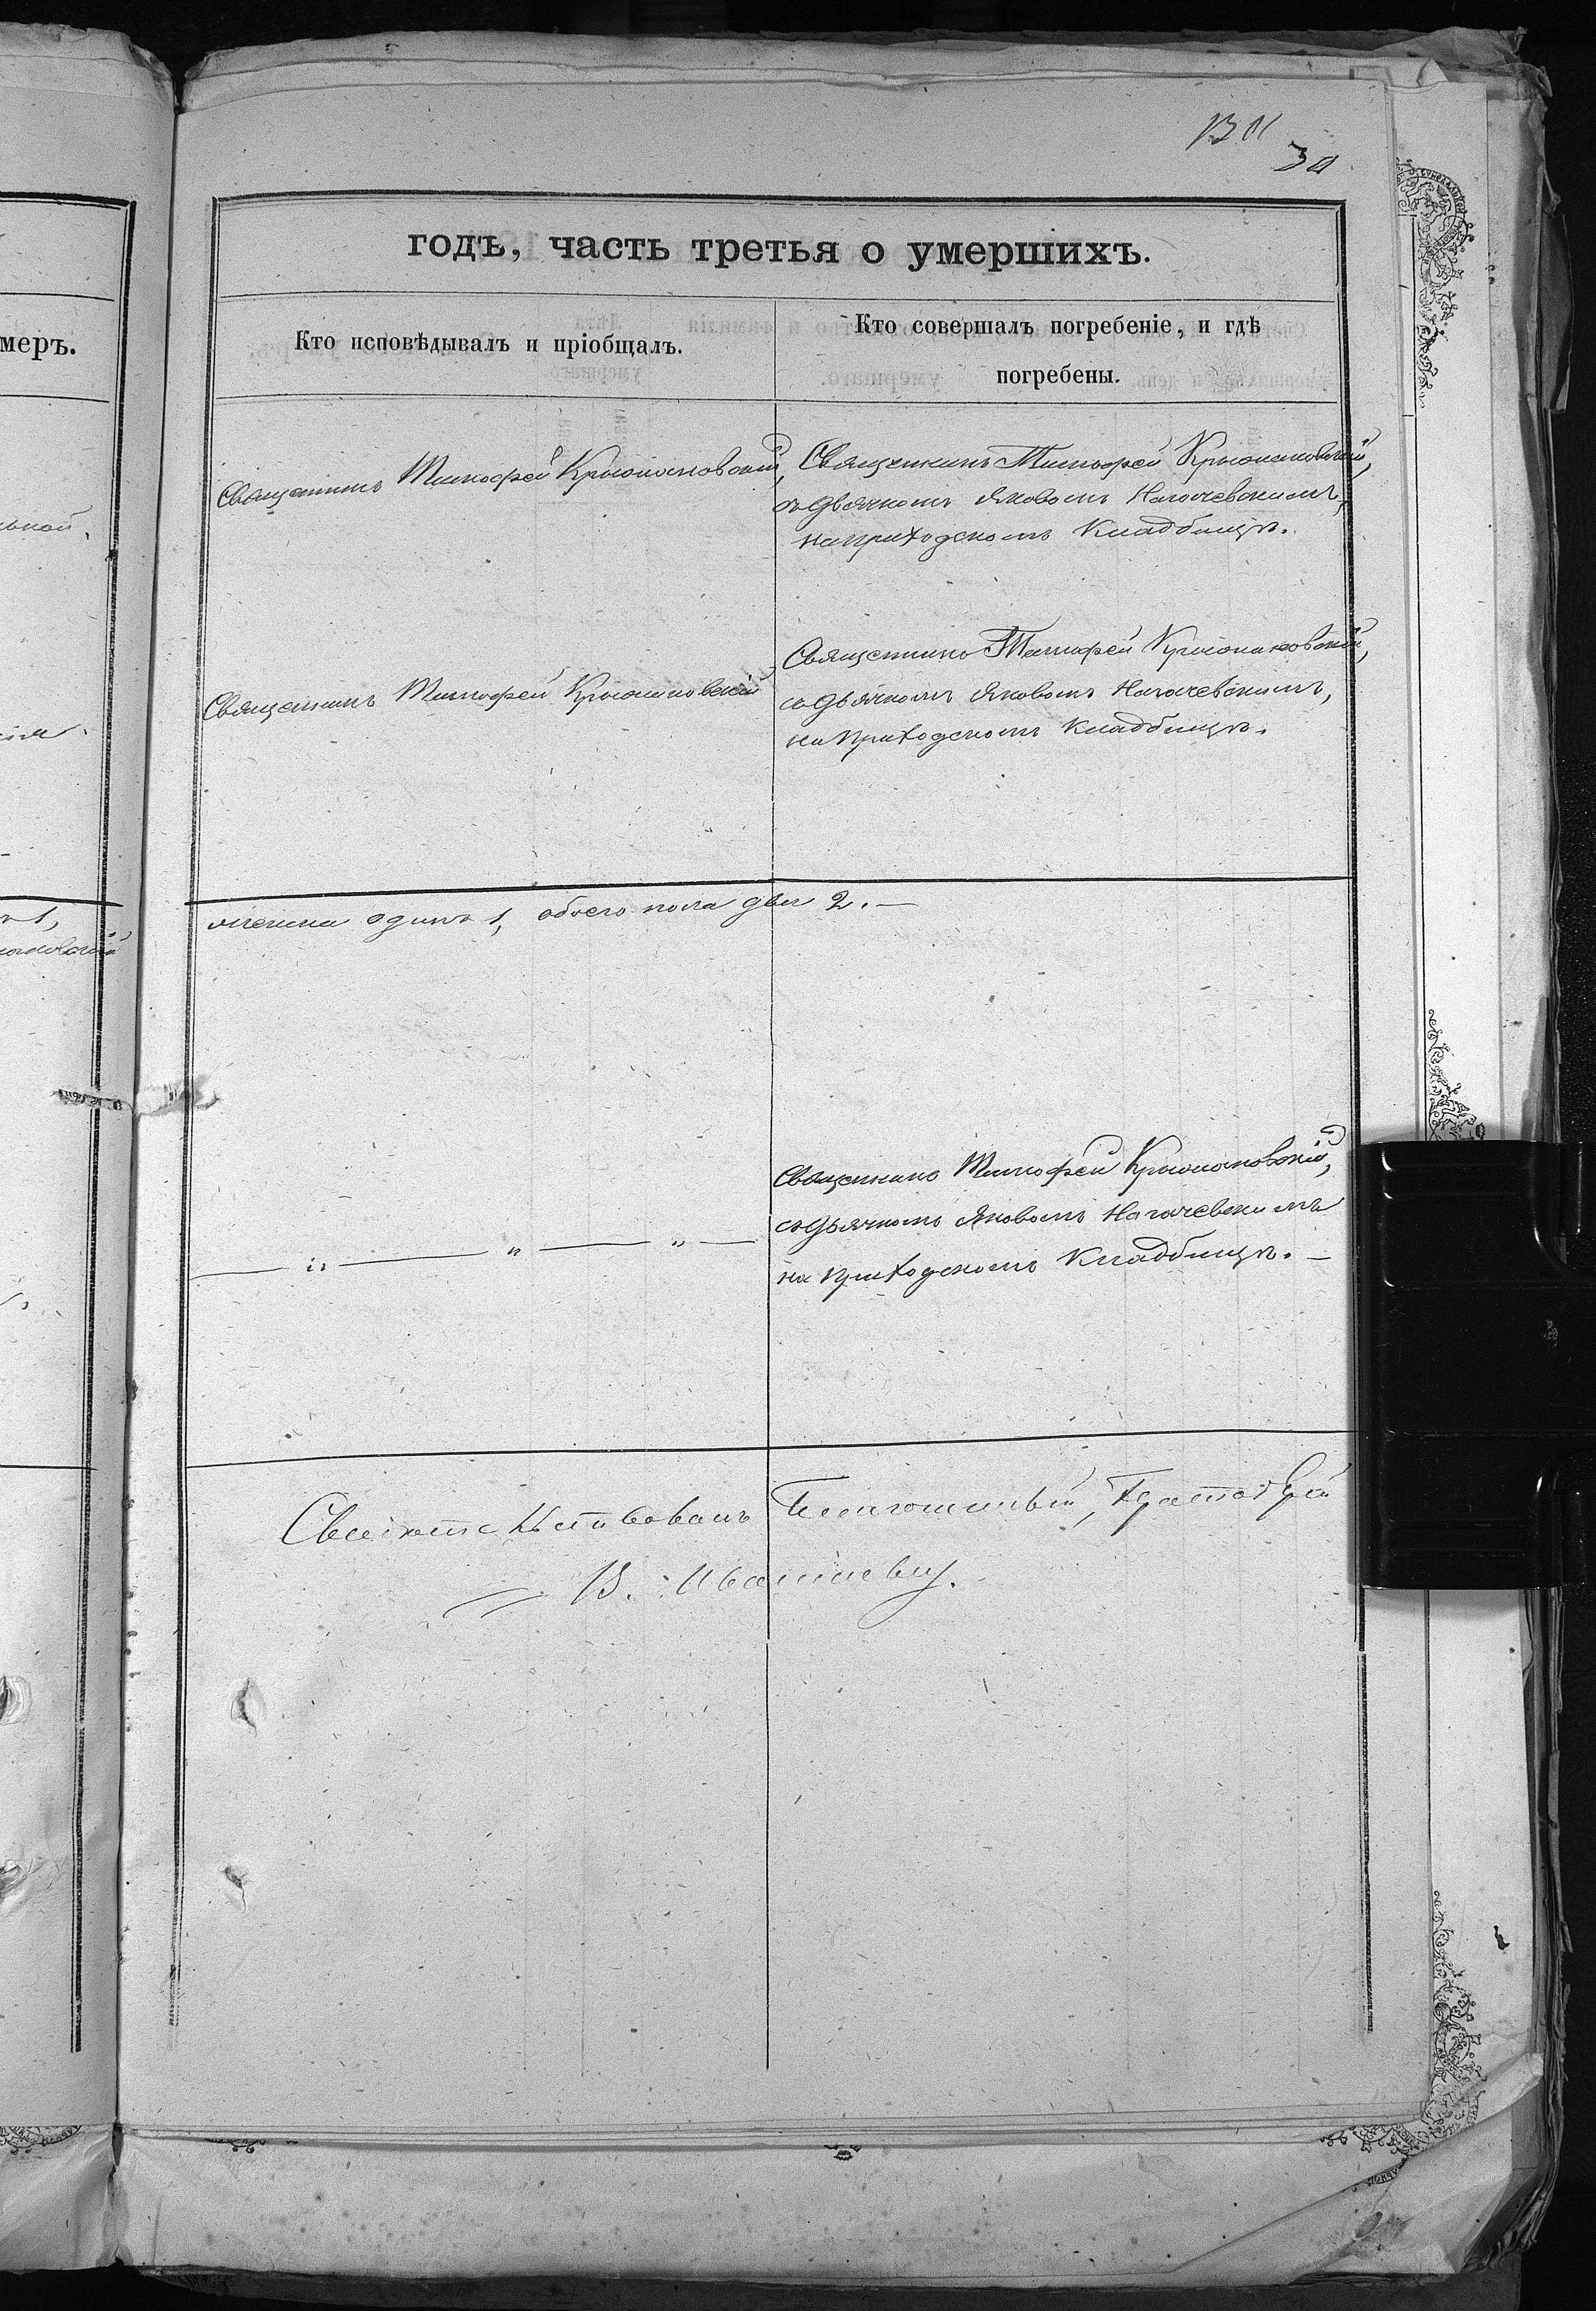 30
годъ, часть третья о умершихъ.
меръ.
Кто исповѣдывалъ и пріобщалъ.
Кто совершалъ погребеніе, и гдѣ
погребены.
Священникъ Тимофей Крыжановскій,
Священникъ Тимофей Крыжановскій,
съ Дьячкомъ Яковомъ Нагачевскимъ,
на приходскомъ Кладбищѣ.
Священникъ Тимофей Крыжановскій
Священникъ Тимофей Крыжановскій,
съ Дьячкомъ Яковомъ Нагачевскимъ,
на Приходскомъ Кладбищѣ.
одинъ 1, обоего пола два 2. —
Священникъ Тимофей Крыжановскій,
съ Дьячкомъ Яковомъ Нагачевскимъ
на Приходскомъ Кладбищѣ. —
— „ — „ — „ —
Свидѣтельствовалъ Благочинный, Протоіерей
В.